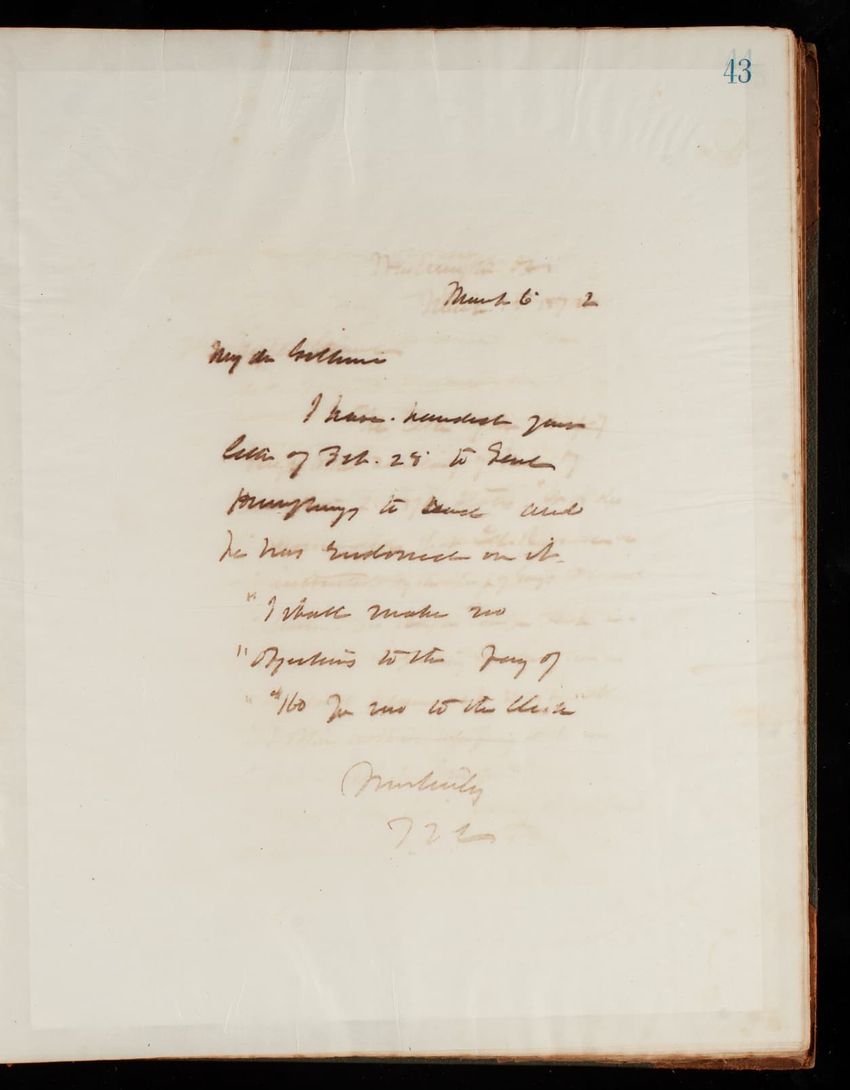 43
March 6 2
My dear Williams
I have handed your
letter of Feb. 28 to Genl
Humphreys to read and
he has endorsed on it.
"I shall make no
"objections to the pay of
"$160 per mo to the Clerk"
Yours truly
T L C